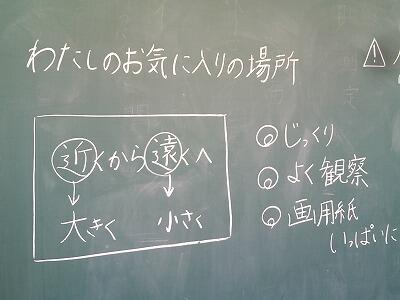 わたしのお気に入りの場所
近くから遠くへ
大きく 小さく
◎じっくり
◎よく観察
◎画用紙
いっぱいに